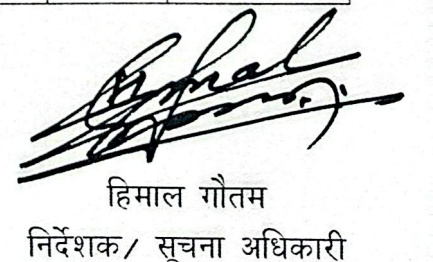 हिमाल गौतम
निर्देशक/ सूचना अधिकारी